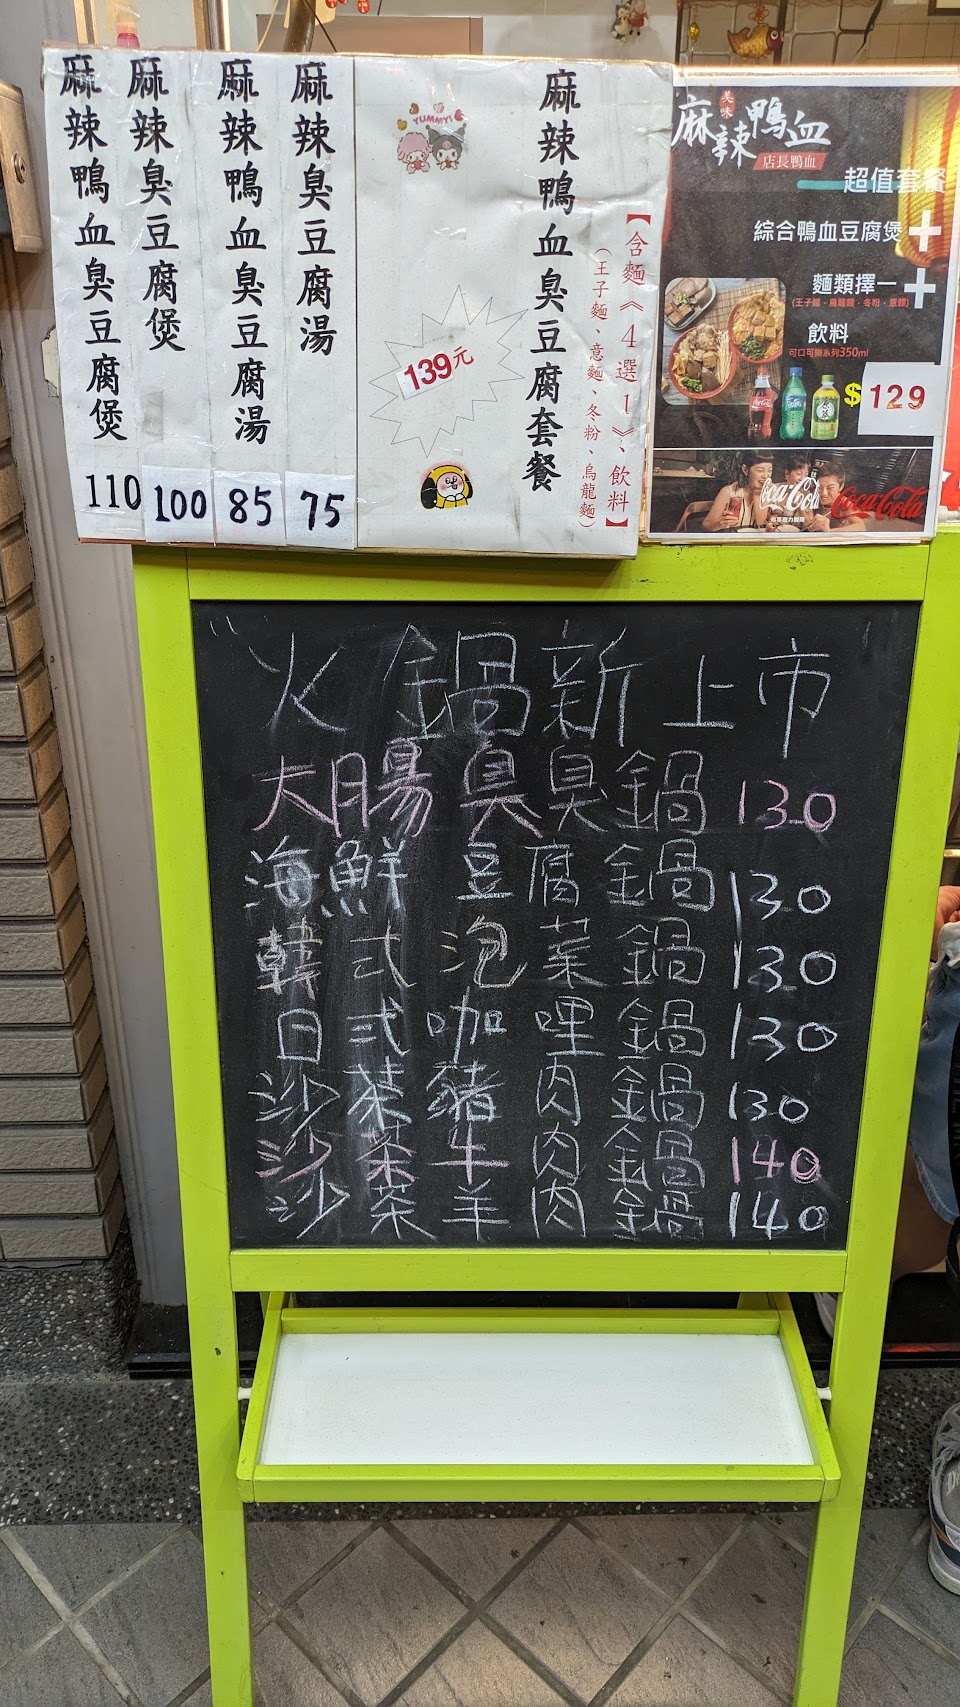 麻辣鴨血臭豆腐套餐
【含麵《4選1》、飲料】
(王子麵、意麵、冬粉、烏龍麵)
YUMMY!
139元
麻辣臭豆腐湯
75
麻辣鴨血臭豆腐湯
85
麻辣臭豆腐煲
100
麻辣鴨血臭豆腐煲
110
美味
麻辣鴨血
店長鴨血
超值套餐
綜合鴨血豆腐煲+
麵類擇一+
(王子麵、烏龍麵、冬粉、意麵)
飲料
可口可樂系列350ml
$129
Coca-Cola
Coca-Cola
"火鍋新上市
大腸臭臭鍋 130
海鮮豆腐鍋 130
韓式泡菜鍋 130
日式咖哩鍋 130
沙茶豬肉鍋 130
沙茶牛肉鍋 140
沙茶羊肉鍋 140